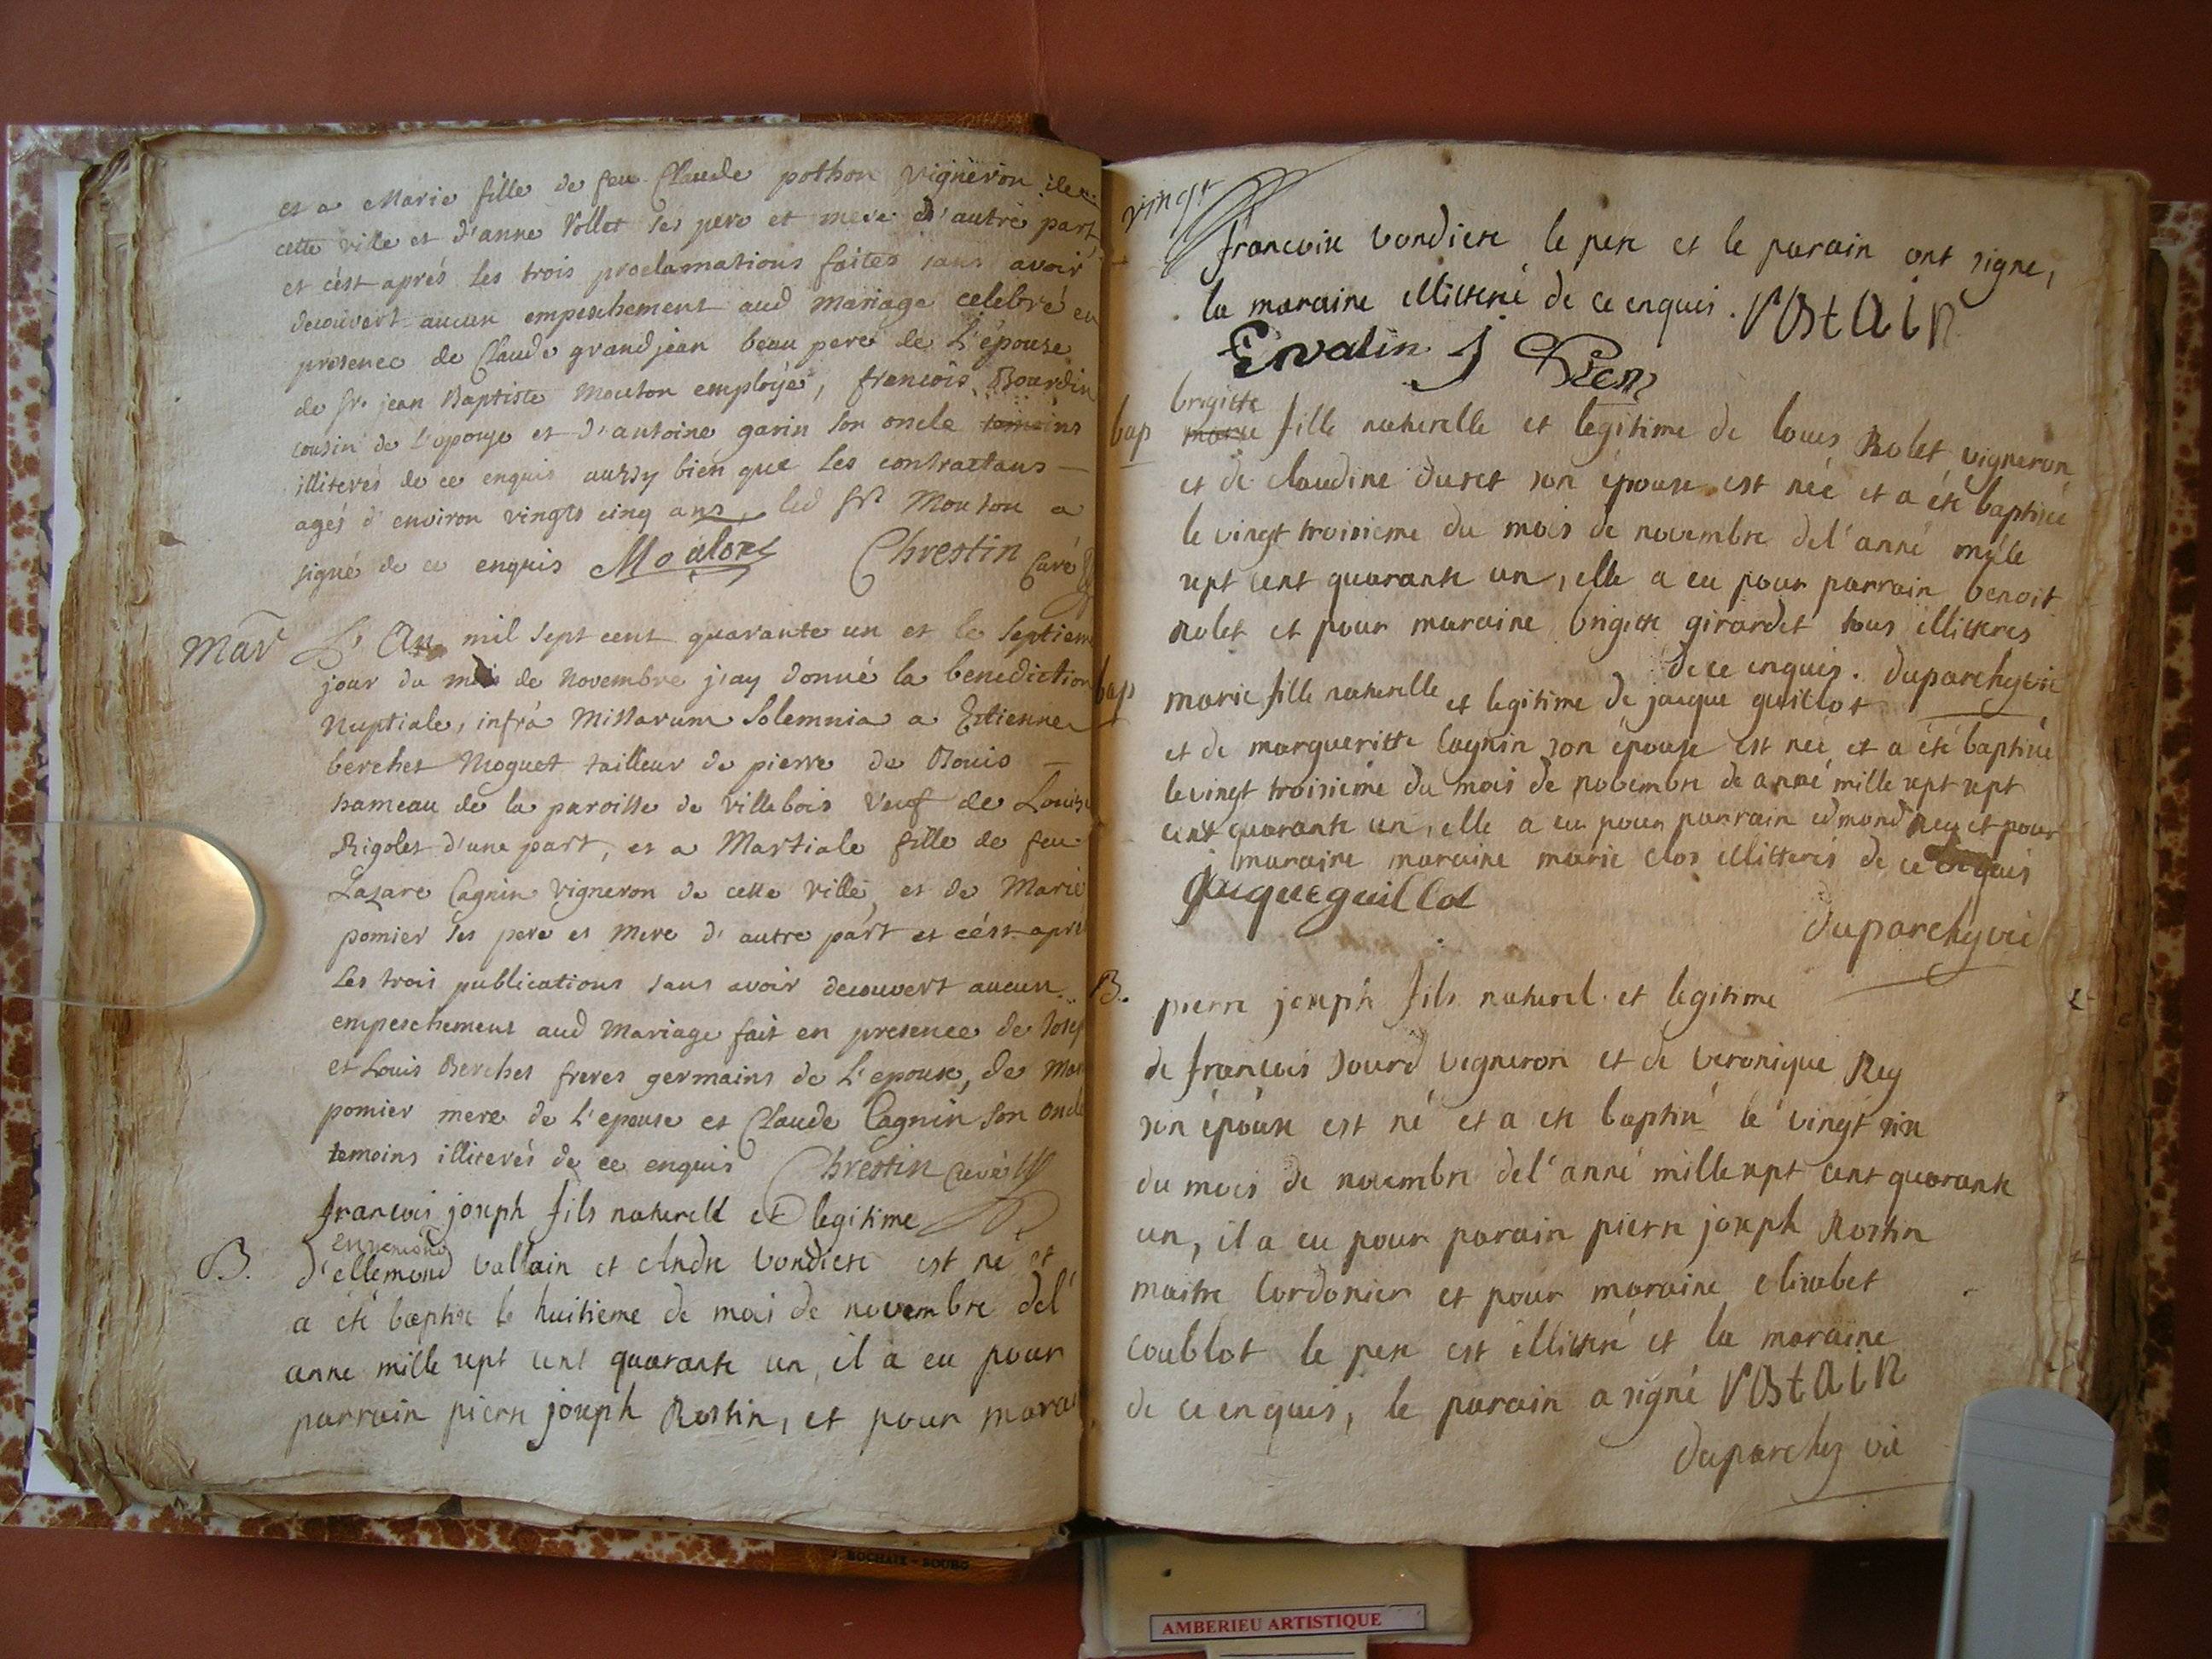 et a Marie fille de feu Claude pothon vigneron de
cette ville et d'anne Vollet ses pere et mere d'autre part
et c'est aprés les trois proclamations faites sans avoir
decouvert aucun empeschement aud mariage celebré en
presence de Claude grandjean beau pere de L'épouse
de sr. jean Baptiste Mouton employé, francois Bourdin
cousin de L'epouse et d'antoine garin son oncle temoins
illiterés de ce enquis aussy bien que les contractans —
agés d'environ vingts cinq ans, led Sr. Mouton a
signé de ce enquis Mouton Chrestin Curé
Mar L'An mil sept cent quarante un et le Septiem
jour du mois de Novembre j'ay donné la benediction
Nuptiale, infrà Missarum Solemnia a Estienne
berchet Moguet tailleur de pierre de Bouis —
hameau de la paroisse de villebois veuf de Louise
Rigolet d'une part, et a Martiale fille de feu
Lazare Cagnin vigneron de cette ville, et de Marie
pomier ses pere et mere d'autre part et c'est apré
Les trois publications sans avoir decouvert aucun
empeschement aud Mariage fait en presence de Josep
et Louis Berchet freres germains de L'epoux, de Mar
pomier mere de L'epouse et Claude Cagnin son oncle
temoins illiterés de ce enquis Chrestin Curé
francois joseph fils naturell et legitime
B. d'ellemond vallain et Andre vondiere est né et
a été baptise le huitieme de mois de novembre del'
anne mille sept cent quarante un, il a eu pour
parrain pierre joseph Rostin, et pour marai
vingt
francoise vondiere le pere et le parain ont signe,
la maraine illiteré de ce enquis. rostain
Envalin
brigitte
bap marie fille naturelle et legitime de loues Rolet vigneron
et de claudine duret son épouse est née et a été baptisée
le vingt troisieme du mois de novembre del'anné mille
sept cent quarante un, elle a eu pour parrain benoit
Rolet et pour maraine brigitte girardet tous illitteres
de ce enquis. duparchy vic
bap marie fille naturelle et legitime de jacque guillot
et de margueritte Cagnin son épouse est neé et a été baptisée
le vingt troisieme du mois de novembre de anné mille sept sept
cent quarante un, elle a eu pour parrain edmond Rey et pour
maraine maraine marie clos illitterés de ce enquis
jaqueguillot
duparchy vic
B. pierre joseph fils naturel et legitime
de francois Jourd vigneron et de veronique Rey
son épouse est né et a ete baptisé le vingt sixe
du mois de novembre del'anné mille sept cent quarante
un, il a eu pour parain pierre joseph Rostin
maitre Cordonier et pour maraine elisabet
coublot le pere est illiteré et la maraine
de ce enquis, le parain a signé rostain
duparchy vic
J. ROCHAIX - BOURG
AMBERIEU ARTISTIQUE